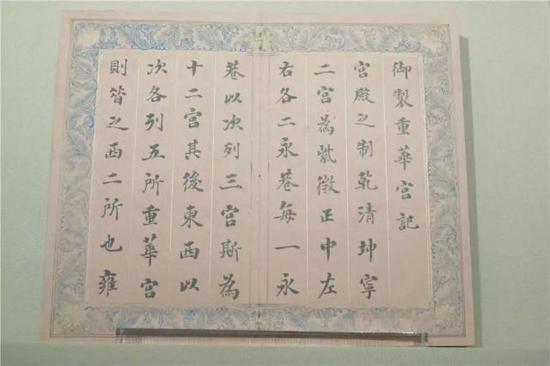 御製重華宮記
宮殿之制乾清坤寧
二宮為紫微正中左
右各二永巷每一永
巷以次列三宮斯為
十二宮其後東西以
次各列五所重華宮
則昔之西二所也雍